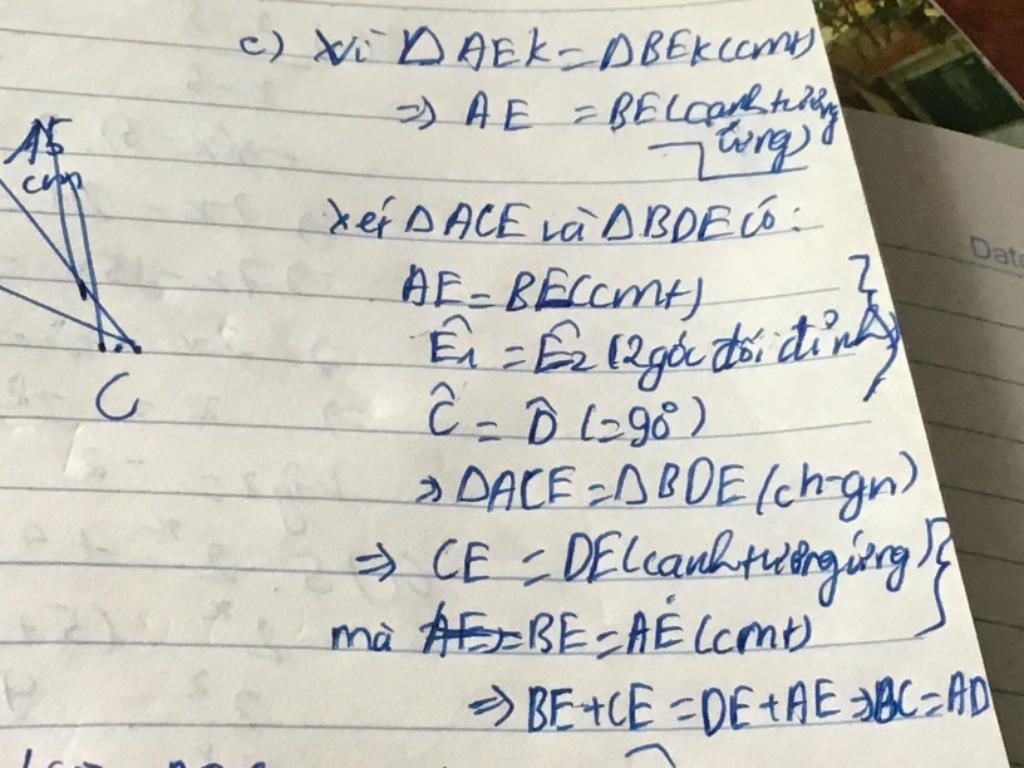 c) Vì ΔAEK = ΔBEK (cmt)
⇒ AE = BE (cạnh tương
ứng)
Xét ΔACE và ΔBDE có:
Date
AE = BE (cmt)
Ê₁ = Ê₂ (2 góc đối đỉnh)
Ĉ = D̂ (=90°)
C
⇒ ΔACE = ΔBDE (ch-gn)
⇒ CE = DE (cạnh tương ứng)
mà AE = BE = AE (cmt)
⇒ BE + CE = DE + AE ⇒ BC = AD